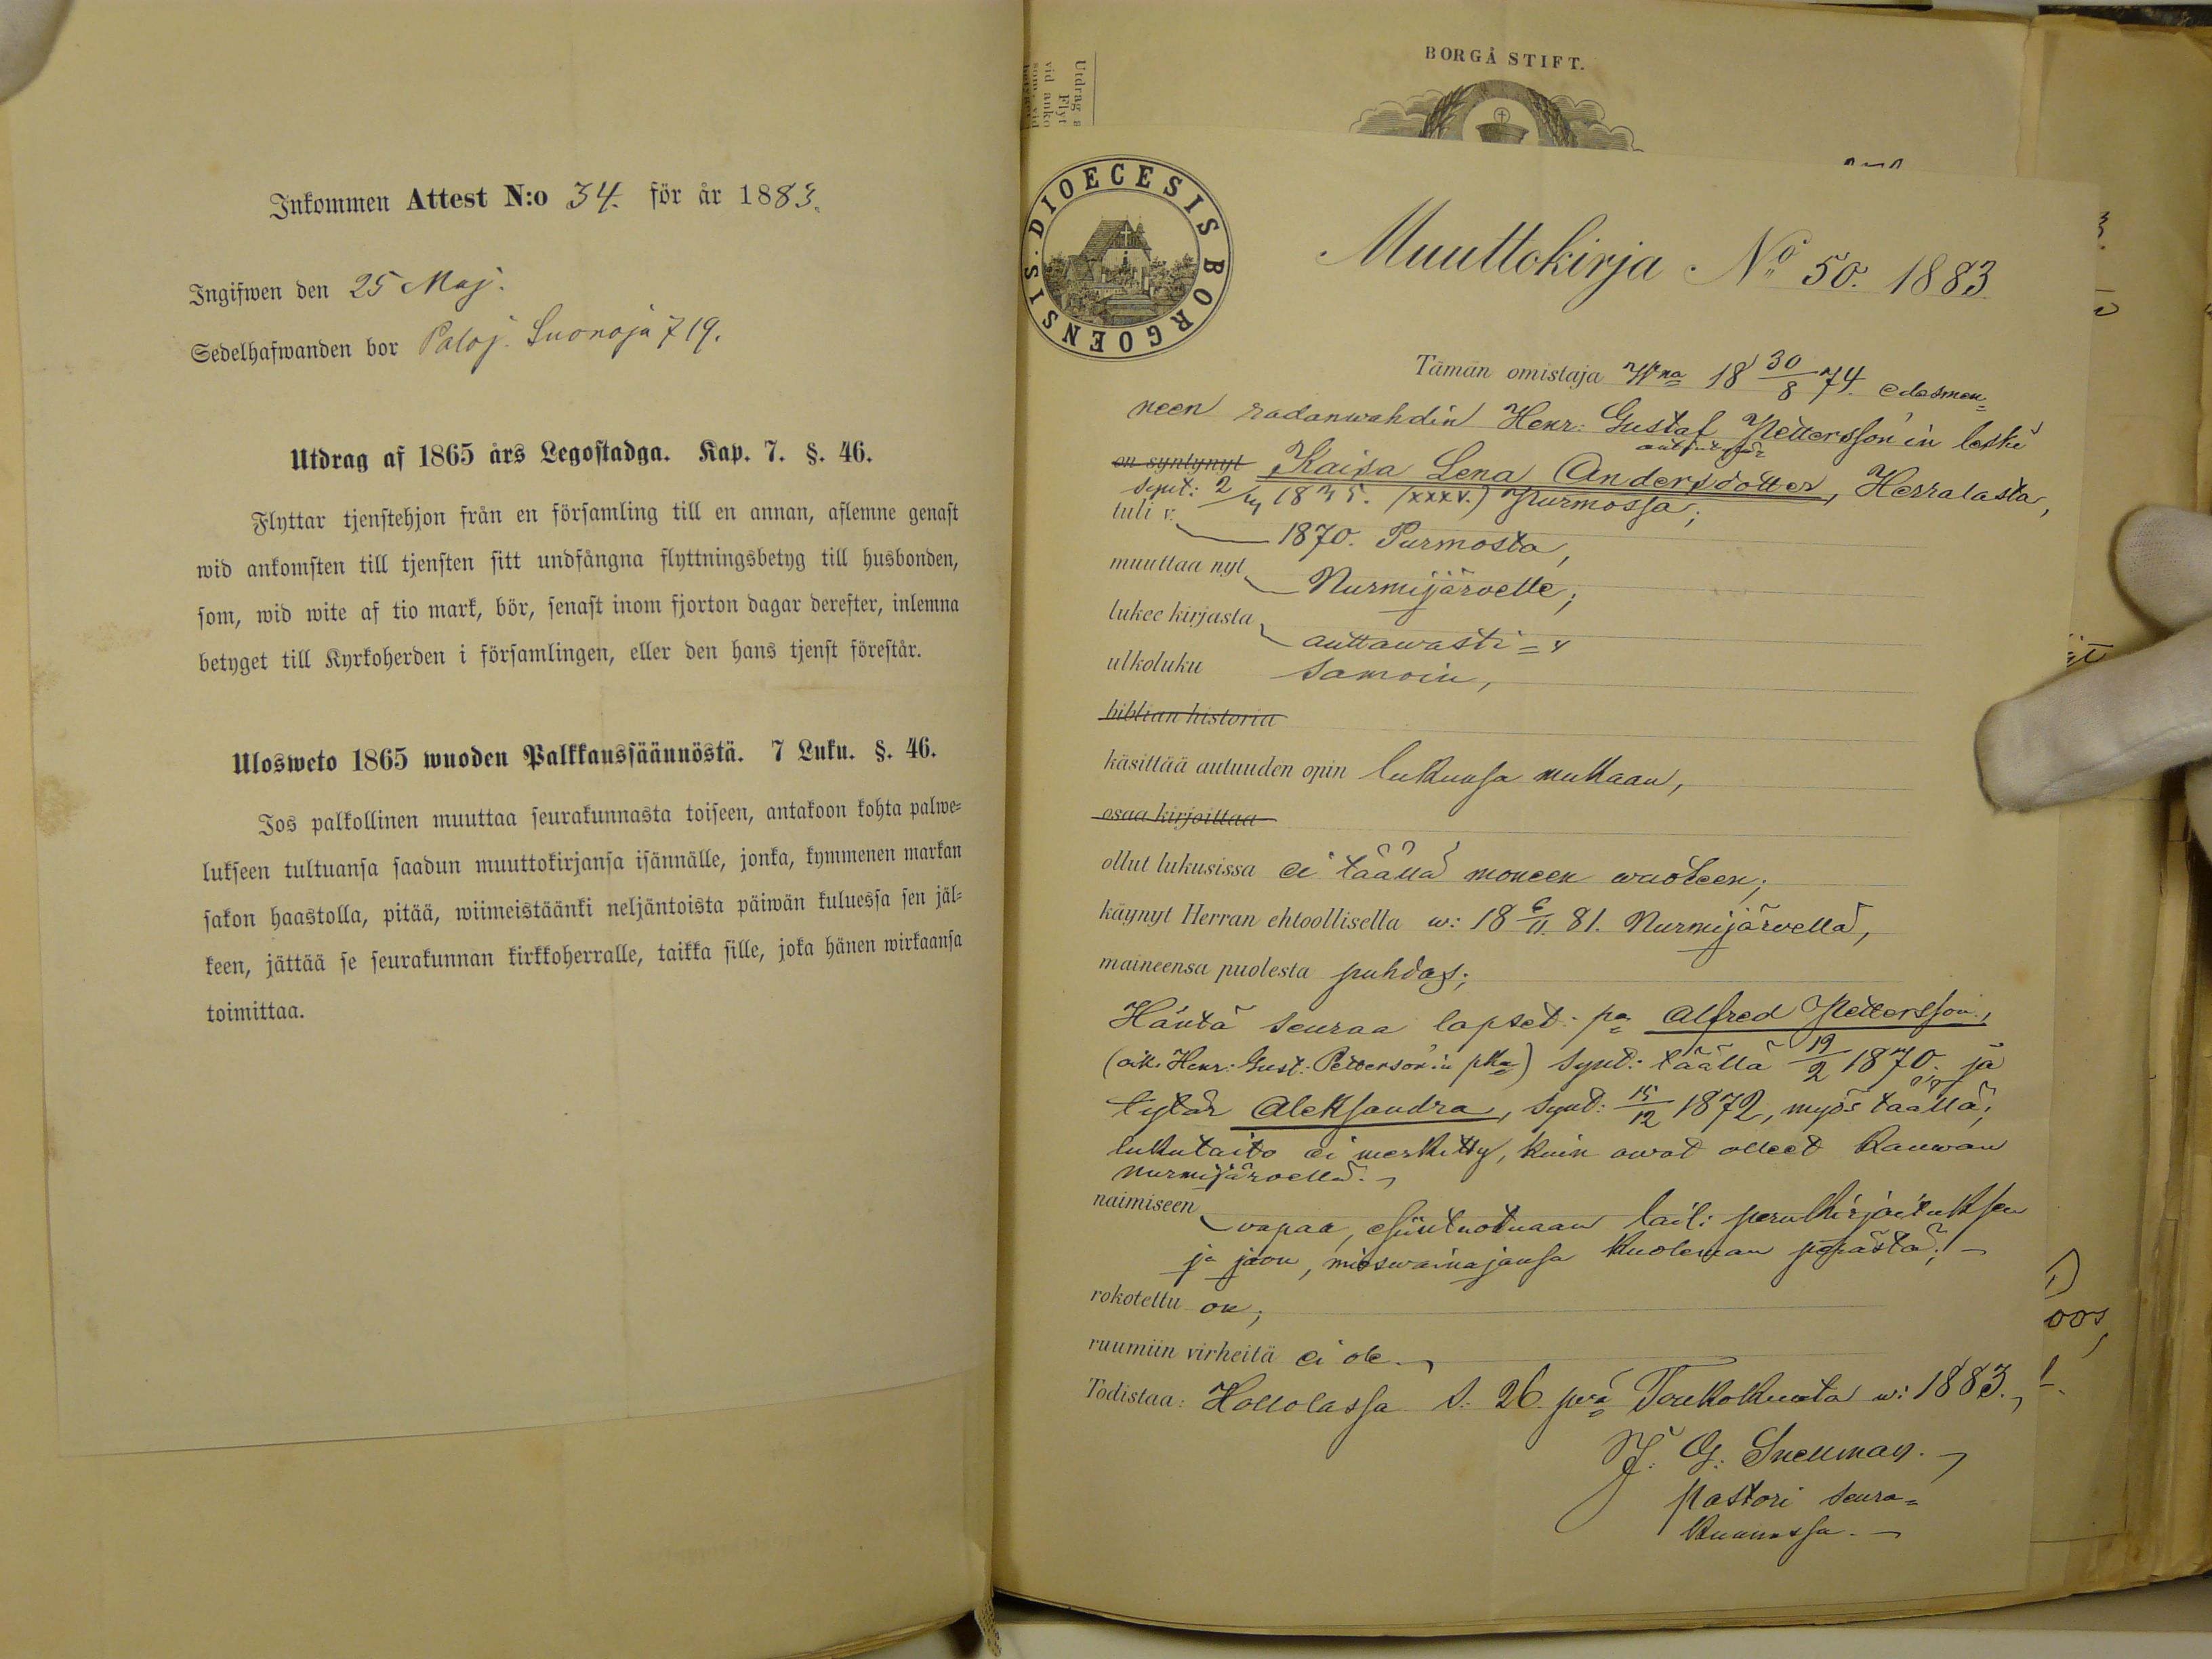 Inkommen Attest N:o 34. för år 1883.
Ingifwen den 25 Maj.
Sedelhafwanden bor Paloj. Suonoja 719.
Utdrag af 1865 års Legostadga. Kap. 7. §. 46.
Flyttar tjenstehjon från en församling till en annan, aflemne genast
wid ankomsten till tjensten sitt undfångna flyttningsbetyg till husbonden,
som, wid wite af tio mark, bör, senast inom fjorton dagar derefter, inlemna
betyget till Kyrkoherden i församlingen, eller den hans tjenst förestår.
Ulosweto 1865 wuoden Palkkaussäännöstä. 7 Luku. §. 46.
Jos palkollinen muuttaa seurakunnasta toiseen, antakoon kohta palwe-
lukseen tultuansa saadun muuttokirjansa isännälle, jonka, kymmenen markan
sakon haastolla, pitää, wiimeistäänki neljäntoista päiwän kuluessa sen jäl-
keen, jättää se seurakunnan kirkkoherralle, taikka sille, joka hänen wirkaansa
toimittaa.
Utdrag
Flyt
vid anko
som, vid
BORGÅ STIFT.
DIOECESIS BORGOENSIS.
Muuttokirja No 50. 1883.
Tämän omistaja Wna 18 30/8 74. edesmen-
neen radanwahdin Henr: Gustaf Pettersson'in leski
on syntynyt Kaisa Lena Andersdotter, Herralasta,
synt: 2/4 1835. (XXXV.) Purmossa;
tuli v. 1870. Purmosta,
muuttaa nyt Nurmijärvelle;
lukee kirjasta auttawasti =
ulkoluku samoin,
biblian historia
käsittää autuuden opin lukunsa mukaan,
osaa kirjoittaa
ollut lukusissa ei täällä moneen wuoteen;
käynyt Herran ehtoollisella w: 18 6/11 81. Nurmijärvellä,
maineensa puolesta puhdas;
Häntä seuraa lapset: pa Alfred Pettersson,
(oik. Henr: Gust: Petterson'in pka) synt: täällä 19/2 1870. ja
tytär Aleksandra, synt: 15/12 1872, myös täällä;
lukutaito ei merkitty, kuin owat olleet kauwan
Nurmijärvellä.
naimiseen vapaa, esiintuotuaan lail: perukirjoituksen
ja jaon, mieswainajansa kuoleman perästä; -
rokotettu on;
ruumiin virheitä ei ole.
Todistaa: Hollolassa s. 26 pvä Toukokuuta w: 1883.,
J. G. Snellman.
pastori seura-
kunnassa. -